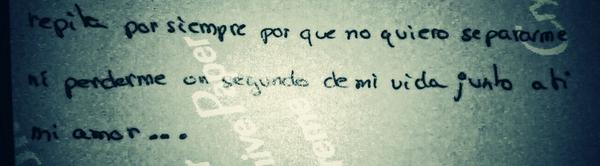 repita por siempre por que no quiero separarme
ni perderme un segundo de mi vida junto a ti
mi amor...